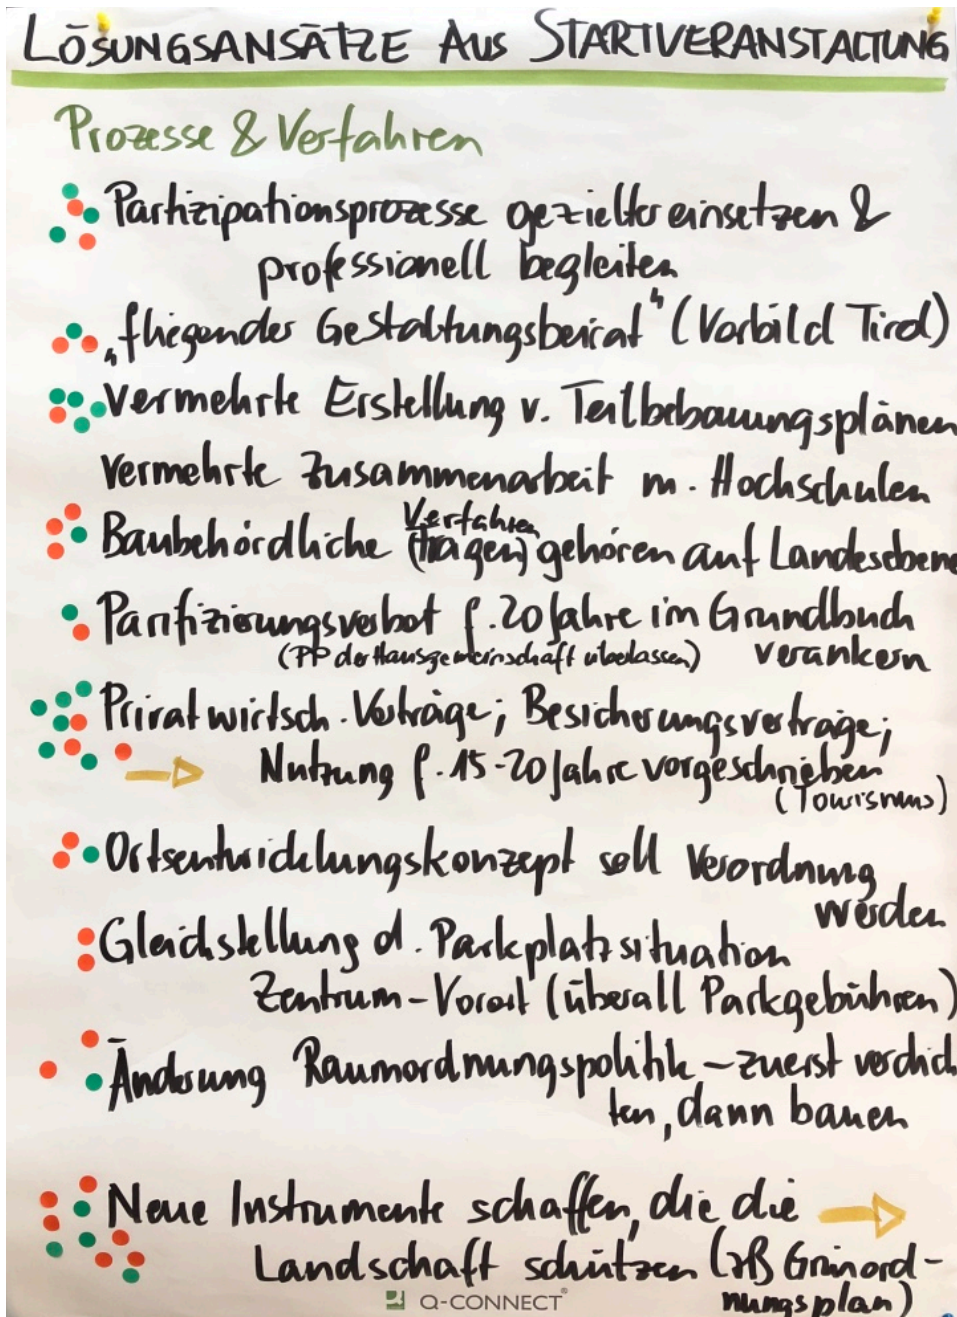 LÖSUNGSANSÄTZE AUS STARTVERANSTALTUNG
Prozesse & Verfahren
Partizipationsprozesse gezielter einsetzen &
professionell begleiten
„fliegender Gestaltungsbeirat" (Vorbild Tirol)
Vermehrte Erstellung v. Teilbebauungsplänen
Vermehrte Zusammenarbeit m. Hochschulen
Verfahren
Baubehördliche (fragen) gehören auf Landesebene
Parifizierungsverbot f. 20 Jahre im Grundbuch
(PP der Hausgemeinschaft überlassen) verankern
Privatwirtsch. Verträge; Besicherungsverträge;
Nutzung f. 15-20 Jahre vorgeschrieben
(Tourismus)
Ortsentwicklungskonzept soll Verordnung
werden
Gleichstellung d. Parkplatzsituation
Zentrum - Vorort (überall Parkgebühren)
Änderung Raumordnungspolitik – zuerst verdich
ten, dann bauen
Neue Instrumente schaffen, die die
Landschaft schützen (zB Grünord-
nungsplan)
Q-CONNECT®